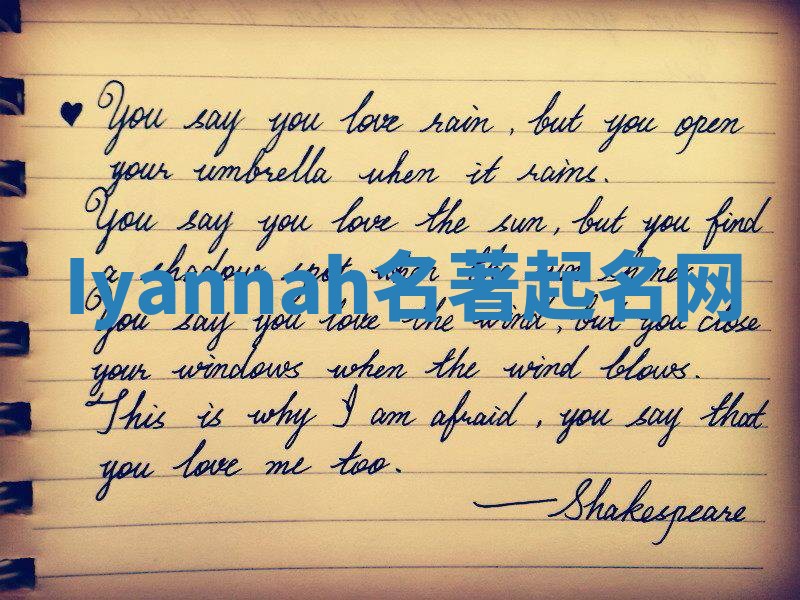 ♥ You say you love rain, but you open
your umbrella when it rains.
You say you love the sun, but you find
a shadow spot when the sun shines.
Iyannah名著起名网
You say you love the wind, but you close
your windows when the wind blows.
This is why I am afraid, you say that
you love me too.
—Shakespeare